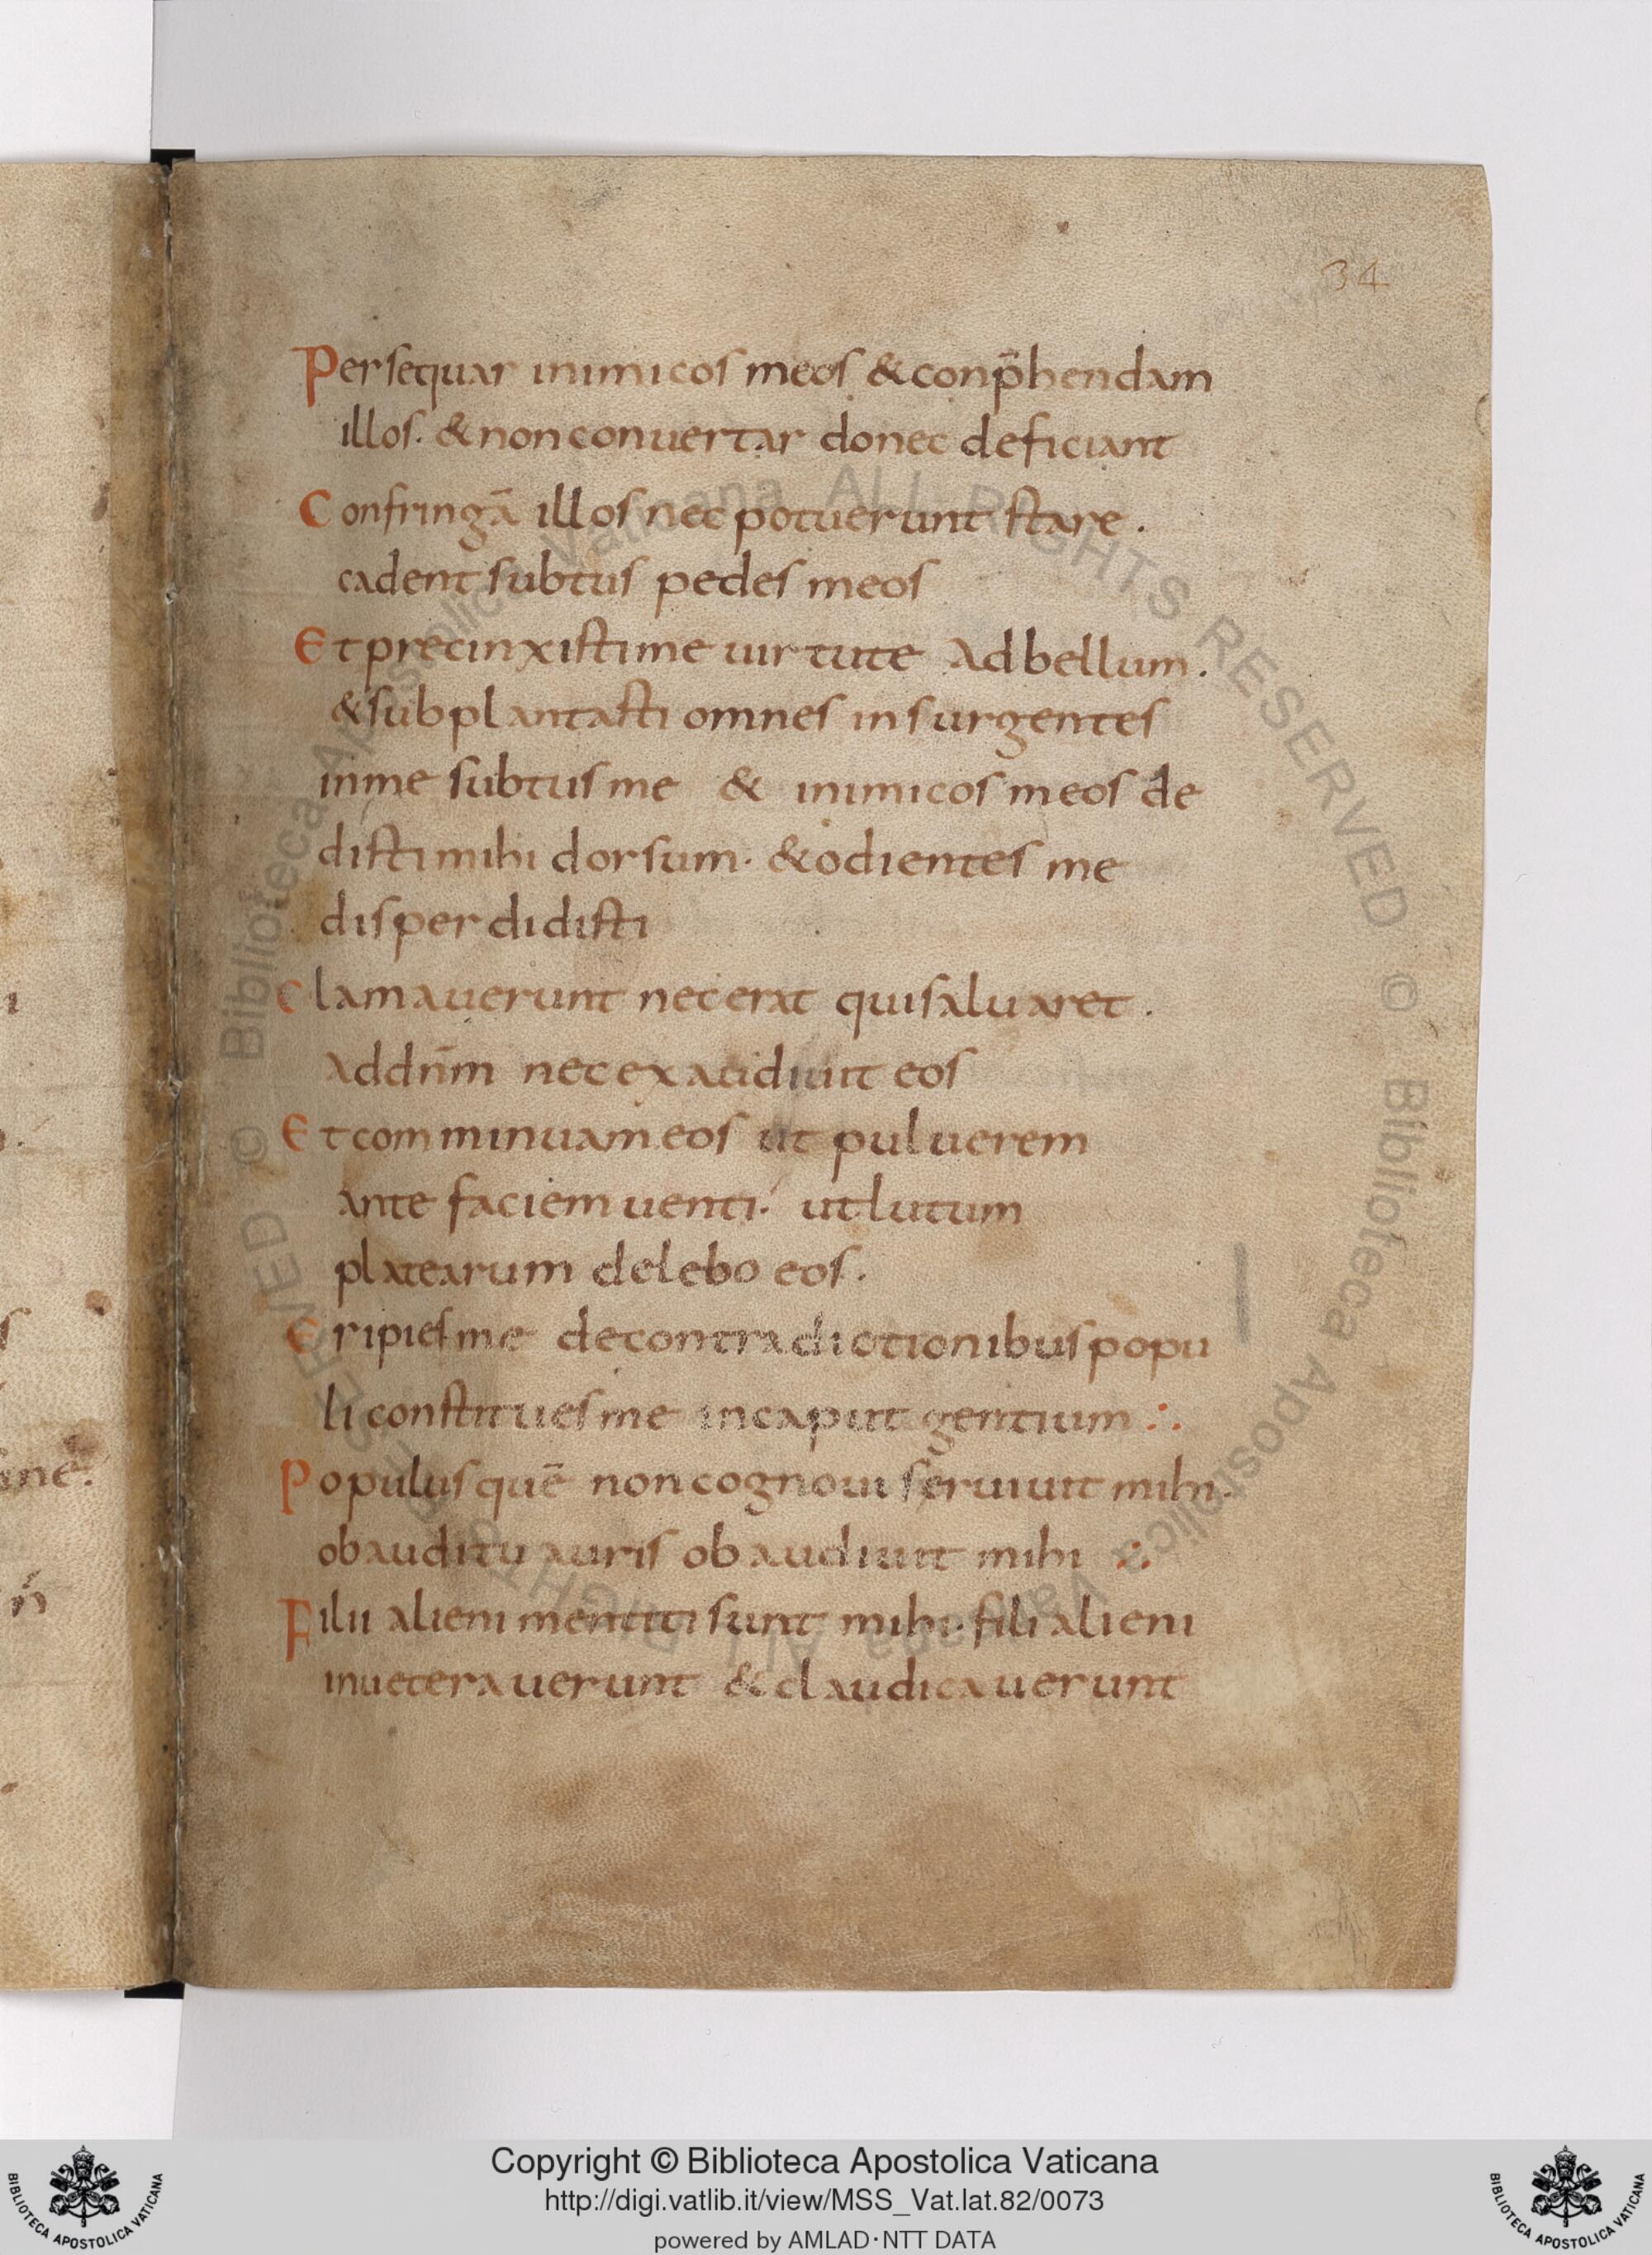 34
Persequar inimicos meos & conp̄hendam
illos. & non conuertar donec deficiant
Confringā illos nec potuerunt stare.
cadent subtus pedes meos
Et precinxisti me uirtute ad bellum.
& subplantasti omnes insurgentes
in me subtus me & inimicos meos de
disti mihi dorsum. & odientes me
disperdidisti
Clamauerunt nec erat qui saluaret.
ad dn̄m nec exaudiuit eos
Et comminuam eos ut puluerem
ante faciem uenti. ut lutum
platearum delebo eos.
Eripies me de contradictionibus popu
li constitues me in caput gentium :.
Populus quē non cognoui seruiuit mihi.
ob auditu auris obaudiuit mihi :.
Filii alieni mentiti sunt mihi. fili alieni
inueterauerunt & claudicauerunt
Biblioteca Apostolica Vaticana ALL RIGHTS RESERVED © Biblioteca Apostolica Vaticana ALL RIGHTS RESERVED ©
Copyright © Biblioteca Apostolica Vaticana
http://digi.vatlib.it/view/MSS_Vat.lat.82/0073
powered by AMLAD·NTT DATA
BIBLIOTECA APOSTOLICA VATICANA
BIBLIOTECA APOSTOLICA VATICANA